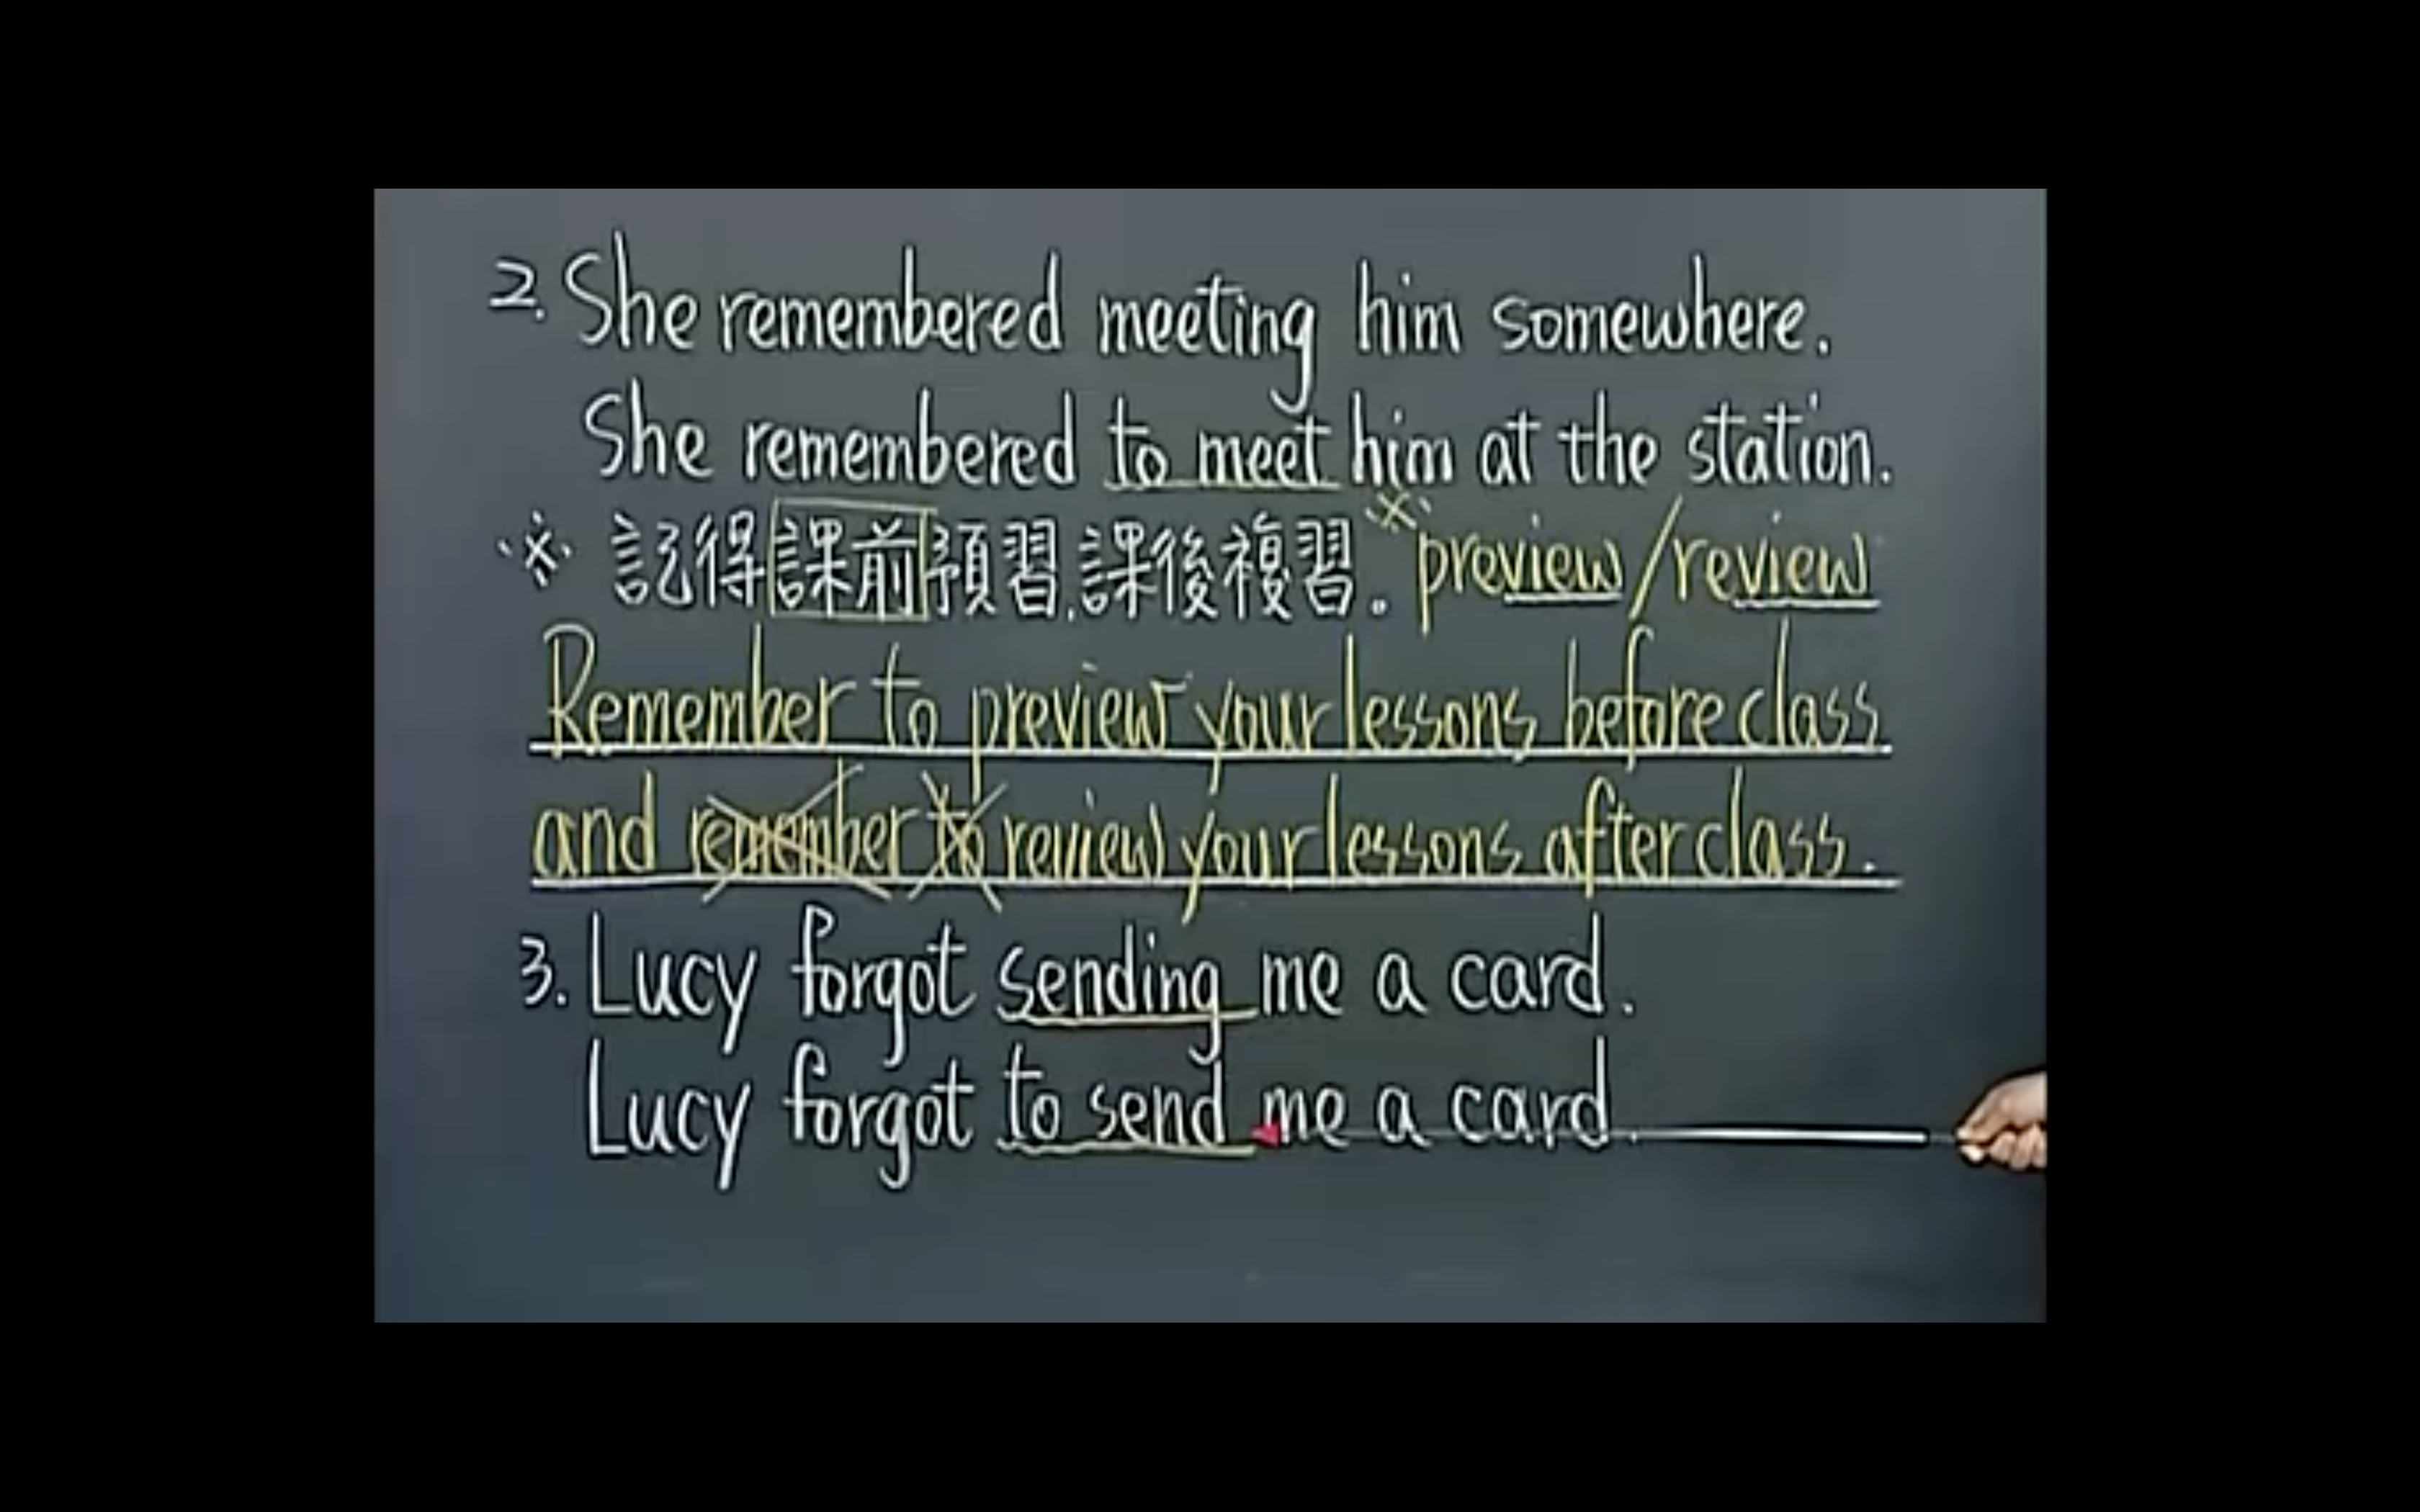 2. She remembered meeting him somewhere.
She remembered to meet him at the station.
※ 記得課前預習,課後複習。 ※ preview / review
Remember to preview your lessons before class
and remember to review your lessons after class.
3. Lucy forgot sending me a card.
Lucy forgot to send me a card.